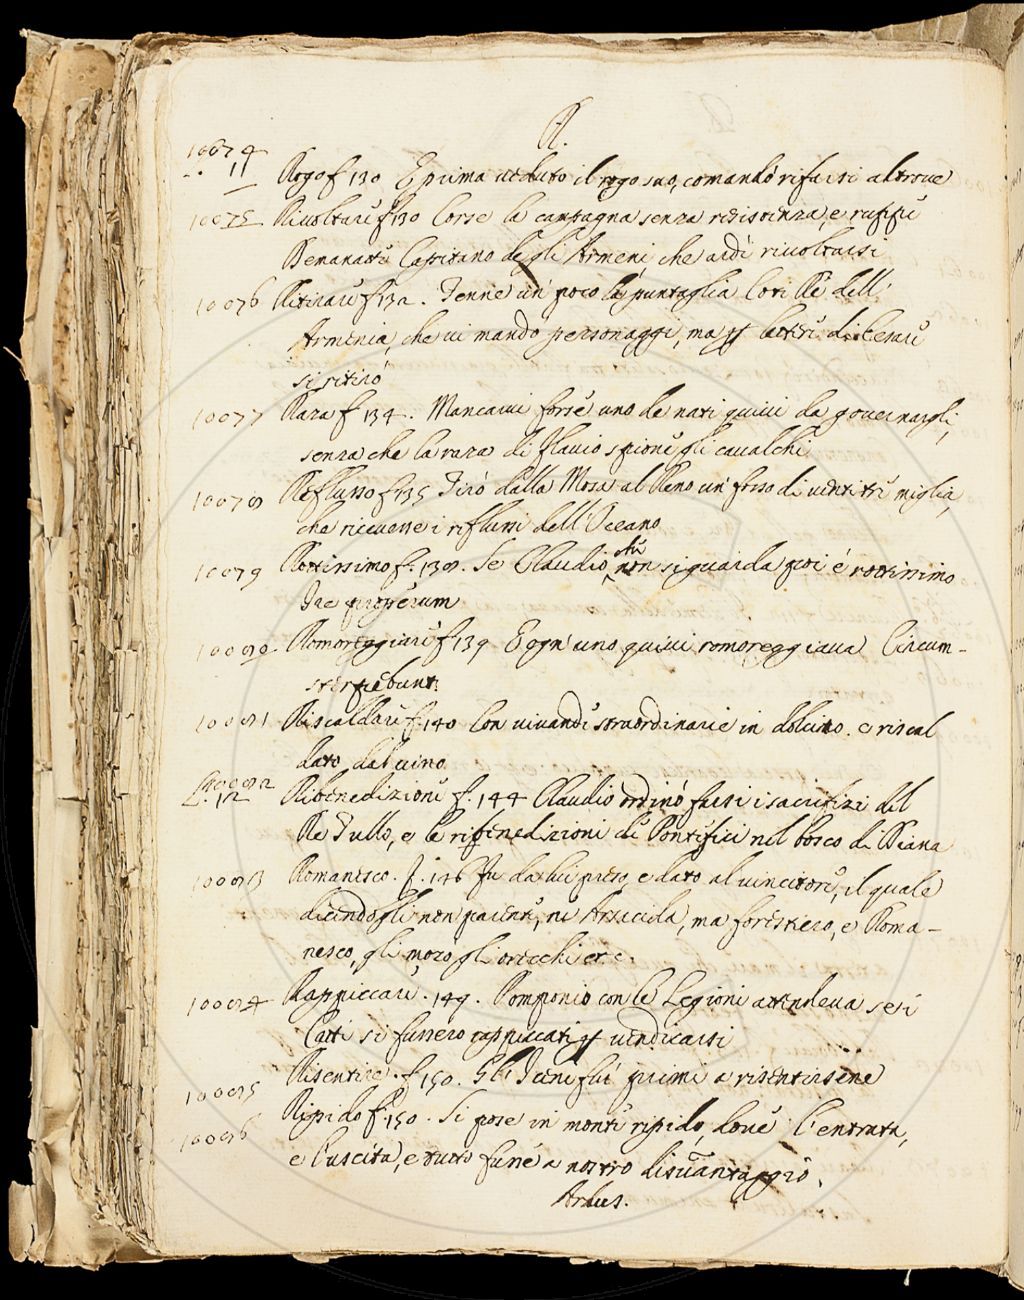 R.
10074
L. 11
Rogo f 130 E prima ueduto il rogo suo, comandò rifarsi altroue
10075 Riuoltare f 130 Corse la campagna senza resistenza, e ruppe
Capitano degli Armeni, che ardì riuoltarsi
10076 Ritirare f 132. Tenne un poco la puntaglia Coti Rè dell'
Armenia, che ui mandò personaggi, ma lettere di Cesare
si ritirò
10077 Raza f 134. Mancarui forse uno de nati quiui da gouernargli,
senza che la raza di Flauio spione gli caualchi
10078 Reflusso f 135 Tirò dalla Mosa al Reno un fosso di uentitre miglia,
che riceuesse i riflussi dell'Oceano
10079 Rottissimo f. 138. Se Claudio non si guarda poi è rottissimo
10080 Romoreggiare f 139 E ogn'uno quiui romoreggiaua Circum-
strepebunt
10081 Riscaldare f. 140 Con uiuande straordinarie in e riscal
dato dal uino
10082
L. 12
Ribenedizione f. 144 Claudio ordinò farsi i sacrifizi del
Re Tullo, e le ribenedizioni de Pontefici nel bosco di Diana
10083 Romanesco. f. 146 Fu da lui preso, e dato al uincitore, il quale
dicendogli non parente, ne Arsacida, ma forestiero, e Roma-
nesco, gli mozò gli orecchi etc.
10084 Rappiccare. 149. Pomponio con le Legioni attendeua se i
Catti si fussero rappiccati uendicarsi
10085 Risentire. f 150. Gl'Iceni primi a risentirsene
10086 Ripido f. 150. Si pose in monte ripido, doue l'entrata,
e l'uscita, e tutto fusse a nostro disuantaggio.